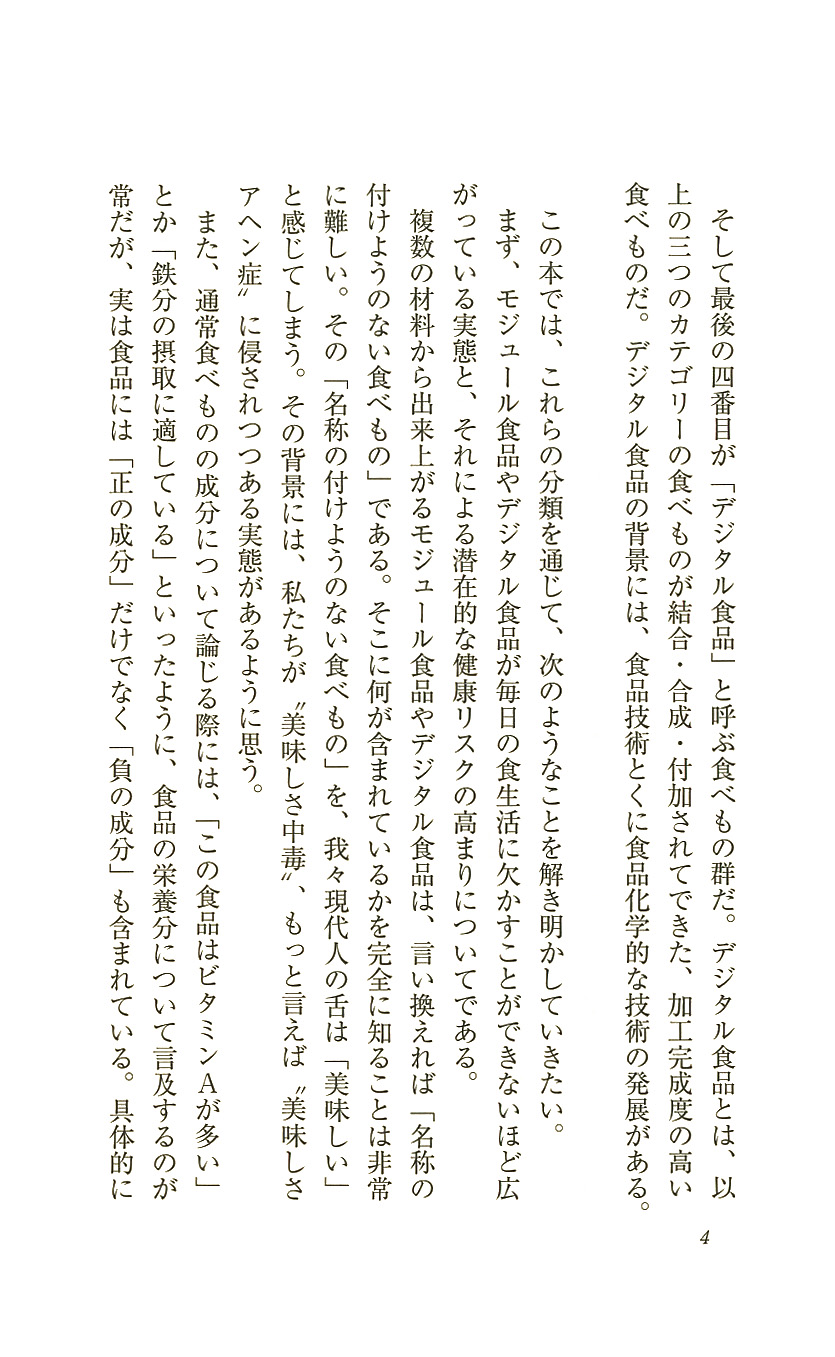 そして最後の四番目が「デジタル食品」と呼ぶ食べもの群だ。デジタル食品とは、以
上の三つのカテゴリーの食べものが結合・合成・付加されてできた、加工完成度の高い
食べものだ。デジタル食品の背景には、食品技術とくに食品化学的な技術の発展がある。
　この本では、これらの分類を通じて、次のようなことを解き明かしていきたい。
　まず、モジュール食品やデジタル食品が毎日の食生活に欠かすことができないほど広
がっている実態と、それによる潜在的な健康リスクの高まりについてである。
　複数の材料から出来上がるモジュール食品やデジタル食品は、言い換えれば「名称の
付けようのない食べもの」である。そこに何が含まれているかを完全に知ることは非常
に難しい。その「名称の付けようのない食べもの」を、我々現代人の舌は「美味しい」
と感じてしまう。その背景には、私たちが〝美味しさ中毒〟、もっと言えば〝美味しさ
アヘン症〟に侵されつつある実態があるように思う。
　また、通常食べものの成分について論じる際には、「この食品はビタミンＡが多い」
とか「鉄分の摂取に適している」といったように、食品の栄養分について言及するのが
常だが、実は食品には「正の成分」だけでなく「負の成分」も含まれている。具体的に
4